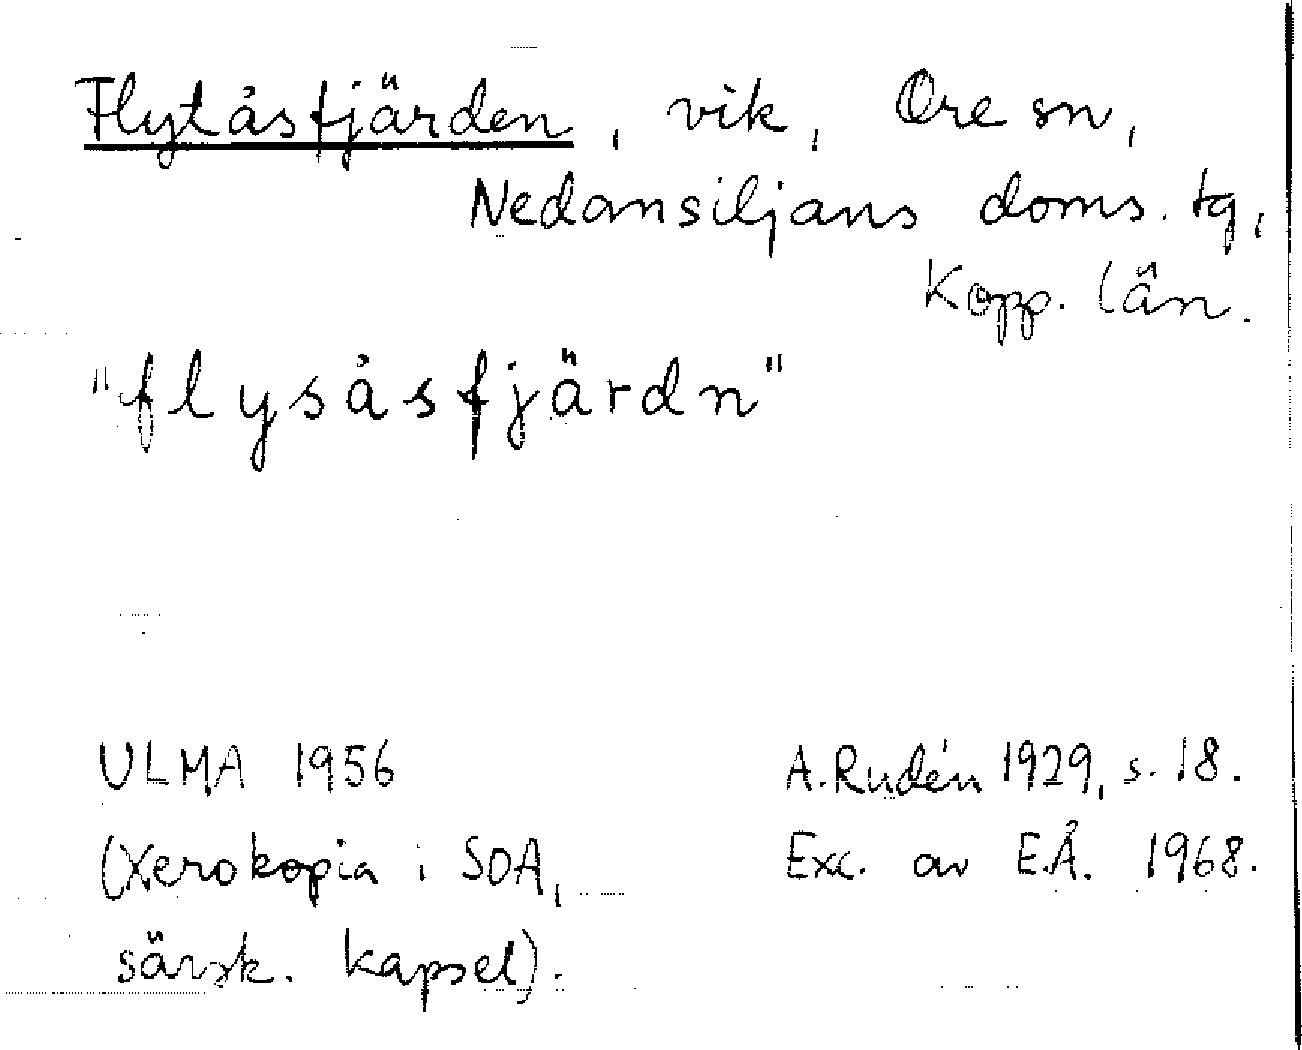 Flytåsfjärden, vik, Ore sn,
Nedansiljans doms. tg,
Kopp. län.
"flysåsfjärdn"
ULMA 1956
A. Rudén 1929, s. 18.
(Xerokopia i SOA,
Exc. av E.Å. 1968.
särsk. kapsel).